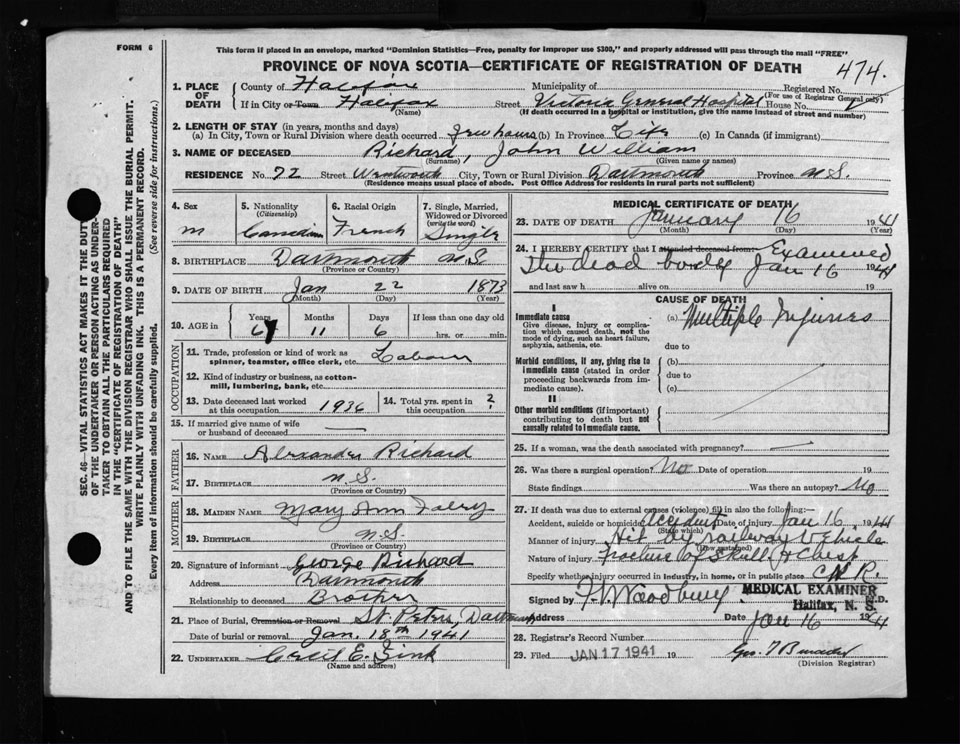 FORM 6
This form if placed in an envelope, marked "Dominion Statistics—Free, penalty for improper use $300," and properly addressed will pass through the mail "FREE"
PROVINCE OF NOVA SCOTIA—CERTIFICATE OF REGISTRATION OF DEATH
474.
1. PLACE OF DEATH
County of Halifax Municipality of Registered No.
(For use of Registrar General only)
If in City or Town Halifax Street Victoria General Hospital House No.
(Name) (If death occurred in a hospital or institution, give the name instead of street and number)
2. LENGTH OF STAY (in years, months and days)
(a) In City, Town or Rural Division where death occurred few hours (b) In Province Life (c) In Canada (if immigrant)
3. NAME OF DECEASED Richard, John William
(Surname) (Given name or names)
RESIDENCE No. 72 Street Wentworth City, Town or Rural Division Dartmouth Province N.S.
(Residence means usual place of abode. Post Office Address for residents in rural parts not sufficient)
4. Sex
m
5. Nationality (Citizenship)
Canadian
6. Racial Origin
French
7. Single, Married, Widowed or Divorced (write the word)
Single
8. BIRTHPLACE Dartmouth N.S
(Province or Country)
9. DATE OF BIRTH Jan 22 1873
(Month) (Day) (Year)
10. AGE in
Years Months Days If less than one day old
67 11 6 hrs. or min.
OCCUPATION
11. Trade, profession or kind of work as spinner, teamster, office clerk, etc. Labourer
12. Kind of industry or business, as cotton-mill, lumbering, bank, etc.
13. Date deceased last worked at this occupation 1936
14. Total yrs. spent in this occupation ?
15. If married give name of wife or husband of deceased —
FATHER
16. NAME Alexander Richard
17. BIRTHPLACE N.S.
(Province or Country)
MOTHER
18. MAIDEN NAME Mary Ann
19. BIRTHPLACE N.S.
(Province or Country)
20. Signature of informant George Richard
Address Dartmouth
Relationship to deceased Brother
21. Place of Burial, Cremation or Removal St. Peters, Dartmouth
Date of burial or removal Jan. 18th 1941
22. UNDERTAKER Cecil E. Zink
(Name and address)
MEDICAL CERTIFICATE OF DEATH
23. DATE OF DEATH January 16 1941
(Month) (Day) (Year)
24. I HEREBY CERTIFY that I attended deceased from Examined
the dead body Jan 16 1941
and last saw h alive on 19
CAUSE OF DEATH
I
Immediate cause
Give disease, injury or complication which caused death, not the mode of dying, such as heart failure, asphyxia, asthenia, etc.
(a) Multiple Injuries
due to
Morbid conditions, if any, giving rise to immediate cause (stated in order proceeding backwards from immediate cause).
(b)
due to
(c)
II
Other morbid conditions (if important) contributing to death but not causally related to immediate cause.
25. If a woman, was the death associated with pregnancy? —
26. Was there a surgical operation? No Date of operation 19
State findings Was there an autopsy? No
27. If death was due to external causes (violence) fill in also the following:—
Accident, suicide or homicide Accident Date of injury Jan 16 1941
(State which)
Manner of injury Hit by railway Vehicle
(How sustained)
Nature of injury Fracture of Skull & Chest
Specify whether injury occurred in industry, in home, or in public place C.N.R.
Signed by F. Woodbury MEDICAL EXAMINER M.D.
Halifax, N. S.
Address Date Jan 16 1941
28. Registrar's Record Number
29. Filed JAN 17 1941 19 Geo.
(Division Registrar)
SEC. 46—VITAL STATISTICS ACT MAKES IT THE DUTY
OF THE UNDERTAKER OR PERSON ACTING AS UNDER-
TAKER TO OBTAIN ALL THE PARTICULARS REQUIRED
IN THE "CERTIFICATE OF REGISTRATION OF DEATH"
AND TO FILE THE SAME WITH THE DIVISION REGISTRAR WHO SHALL ISSUE THE BURIAL PERMIT.
WRITE PLAINLY WITH UNFADING INK. THIS IS A PERMANENT RECORD.
Every item of information should be carefully supplied. (See reverse side for instructions.)